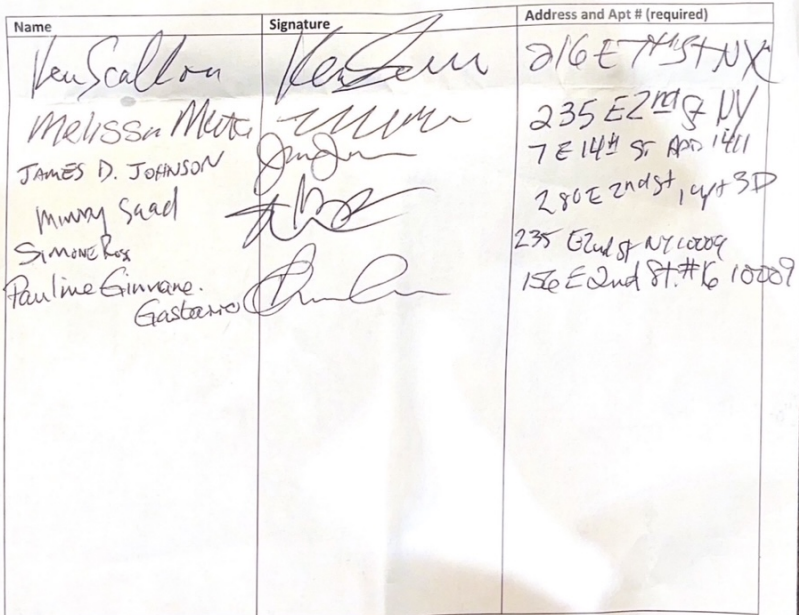 Name Signature Address and Apt # (required)
Ken Scallon 216 E 7th St NY
Melissa 235 E 2nd St NY
JAMES D. JOHNSON 7 E 14th St. APD 1411
Saad 280 E 2nd St, apt 3D
SIMONE Ross 235 E 2nd St NY 10009
Pauline Ginnane. 156 E 2nd St. #16 10009
Gasbarro